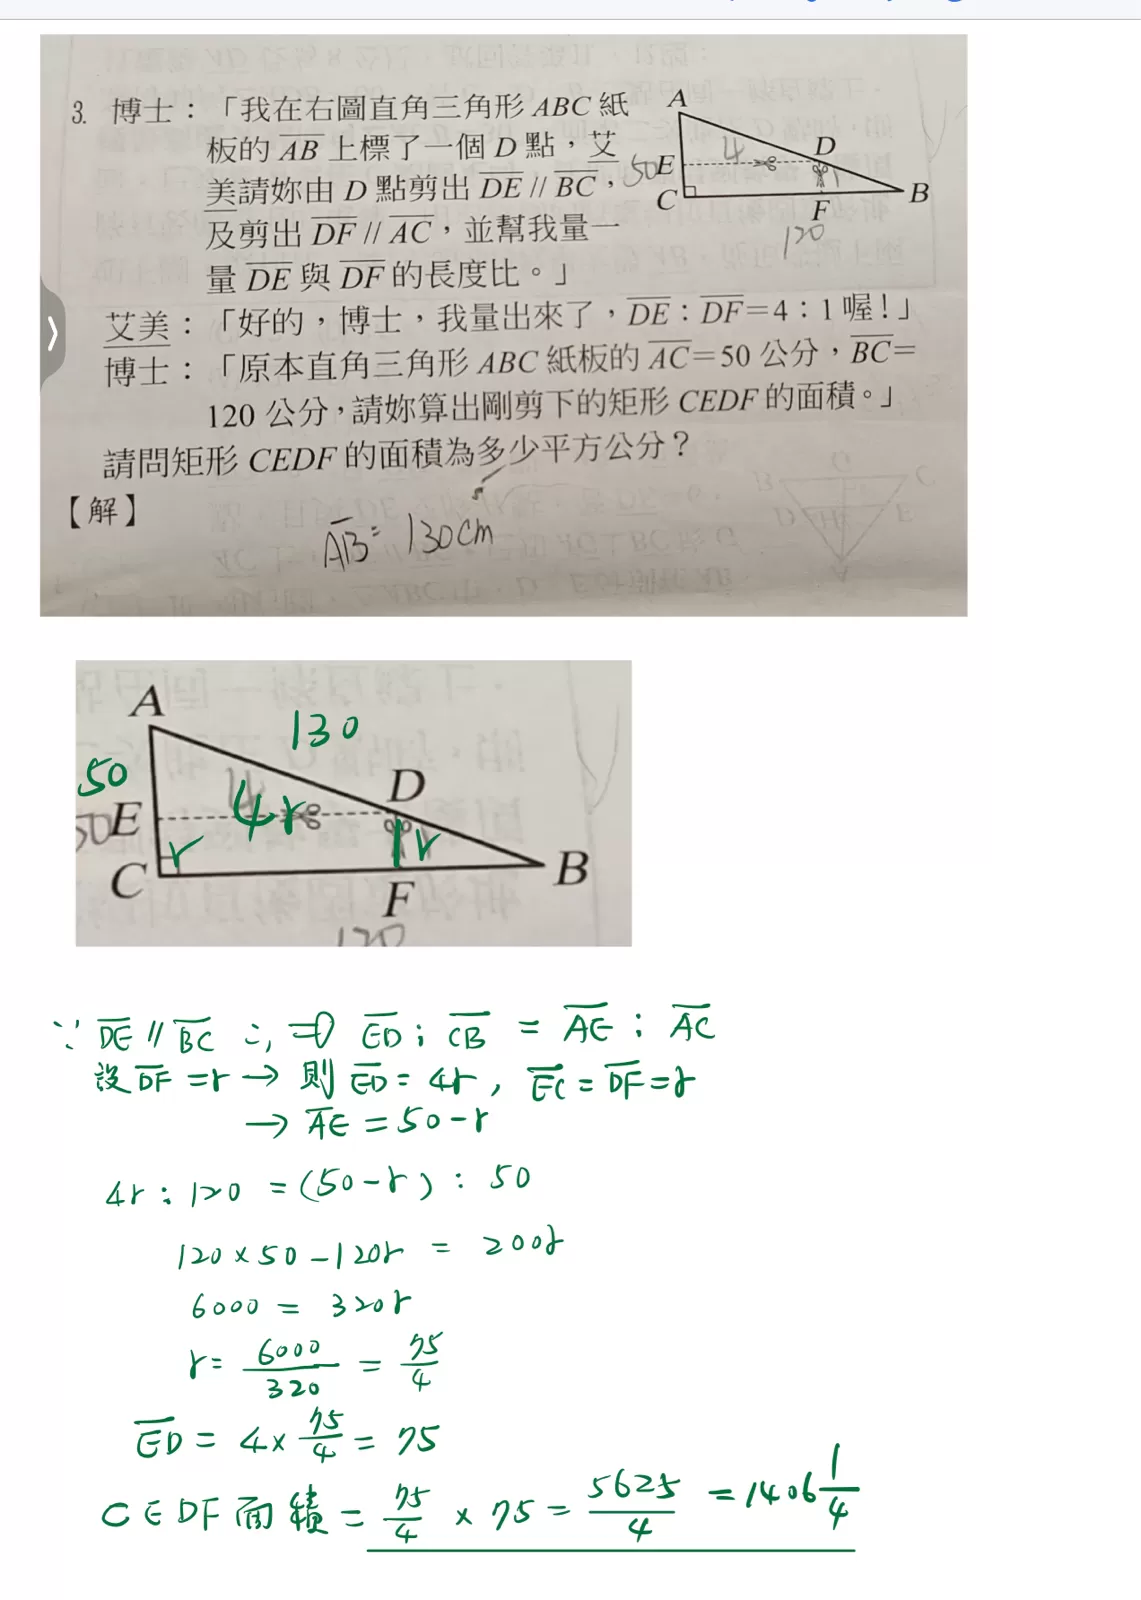 3. 博士：「我在右圖直角三角形 ABC 紙
板的 AB 上標了一個 D 點，艾
美請妳由 D 點剪出 DE // BC，
及剪出 DF // AC，並幫我量一
量 DE 與 DF 的長度比。」
艾美：「好的，博士，我量出來了，DE：DF＝4：1 喔！」
博士：「原本直角三角形 ABC 紙板的 AC＝50 公分，BC＝
120 公分，請妳算出剛剪下的矩形 CEDF 的面積。」
請問矩形 CEDF 的面積為多少平方公分？
【解】
AB = 130cm
A
4
D
50
E
1
C
F
B
120
A
130
50
4
D
50
E
4r
r
1r
C
F
B
120
∵ DE // BC ∴ ⇒ ED : CB = AE : AC
設 DF = r → 則 ED = 4r, EC = DF = r
→ AE = 50-r
4r : 120 = (50-r) : 50
120×50-120r = 200r
6000 = 320r
r = 6000/320 = 75/4
ED = 4× 75/4 = 75
CEDF 面積 = 75/4 × 75 = 5625/4 = 1406 1/4